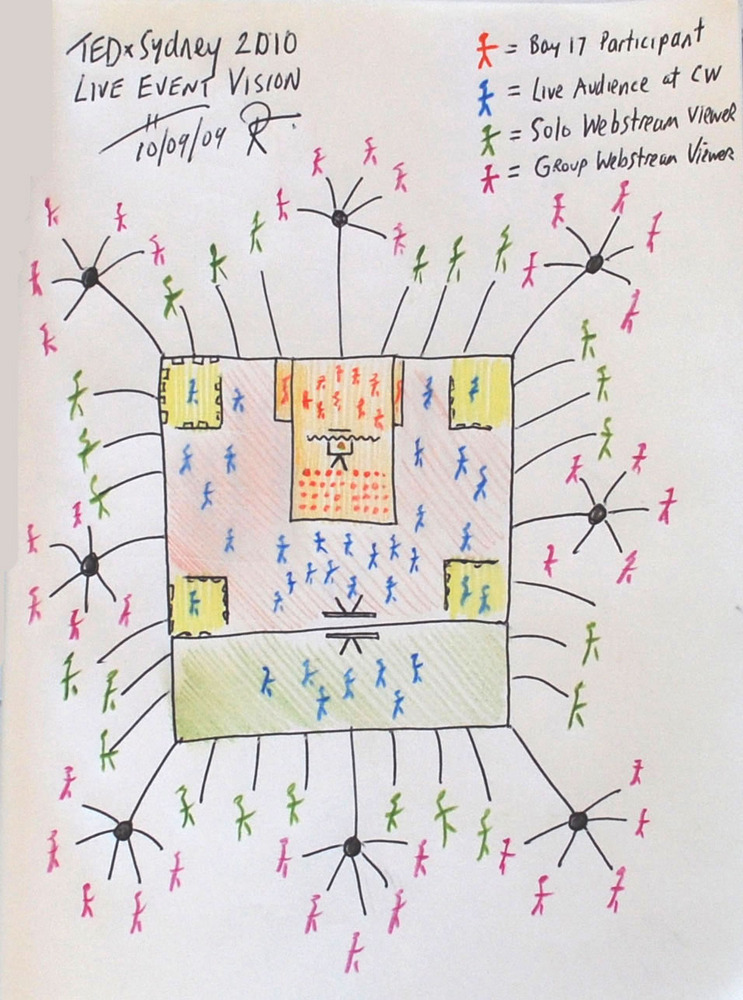 TEDxSydney 2010
LIVE EVENT VISION
10/09/09
= Bay 17 Participant
= Live Audience at CW
= Solo Webstream Viewer
= Group Webstream Viewer